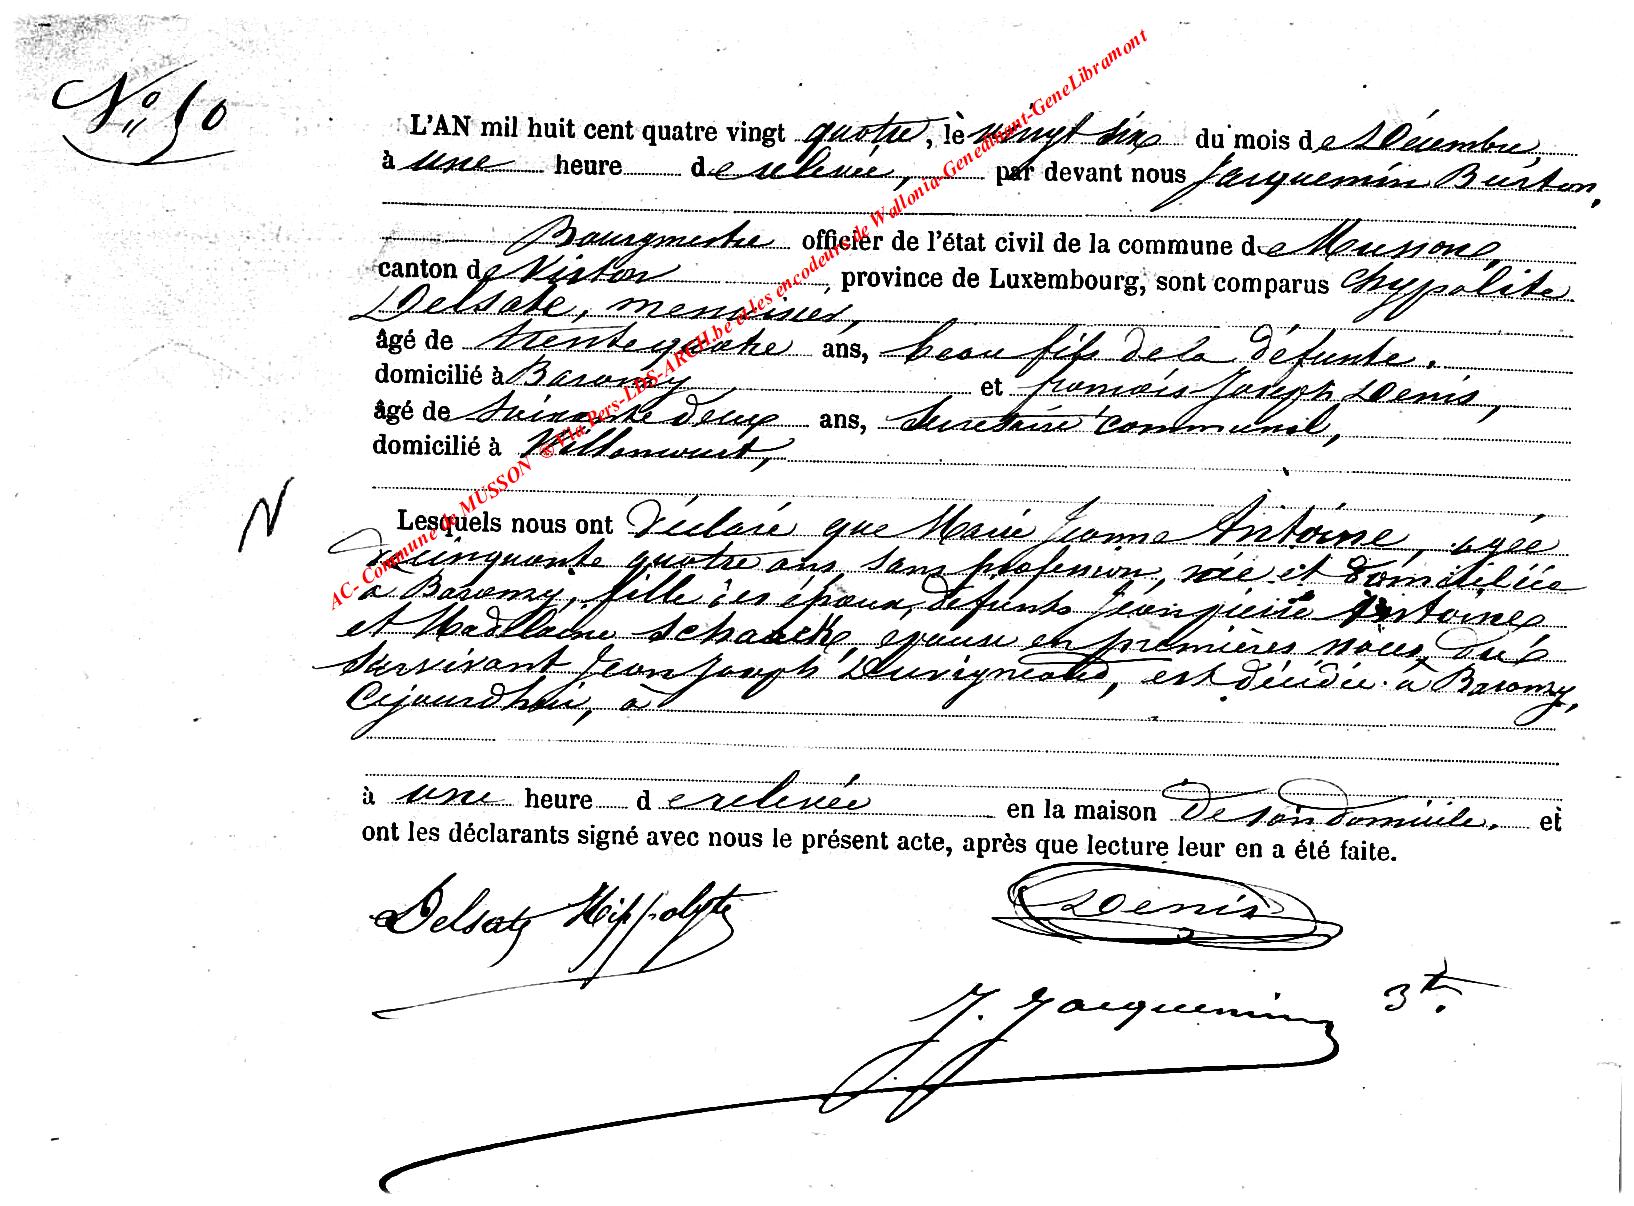 N° 50
L'AN mil huit cent quatre vingt quatre, le vingt six du mois de Décembre,
à une heure de relevée, par devant nous Jacquemin Burton,
Bourgmestre officier de l'état civil de la commune de Musson,
canton de Virton, province de Luxembourg, sont comparus hypolite
Delsate, menuisier,
âgé de trente quatre ans, beau fils de la défunte,
domicilié à Baranzy et francois Joseph Denis,
âgé de soixante deux ans, Secretaire communal,
domicilié à Willancourt,
N
Lesquels nous ont déclaré que Marie Jeanne Antoine, agée
de cinquante quatre ans, sans profession, née et domiciliée
à Baranzy, fille des époux défunts Jean pierre Antoine
et Madllaine Schaack, epouse en premières noces du
Survivant Jean Joseph Duvigneaud, est décédée à Baranzy,
Cejourdhui, à
à une heure de relevée en la maison de son domicile, et
ont les déclarants signé avec nous le présent acte, après que lecture leur en a été faite.
Delsate Hippolyte Denis
J. Jacquemin Btn.
AC- Commune de MUSSON @ Via Pers-LDS-ARCH.be et les encodeurs de Wallonia-Genedinant-GeneLibramont